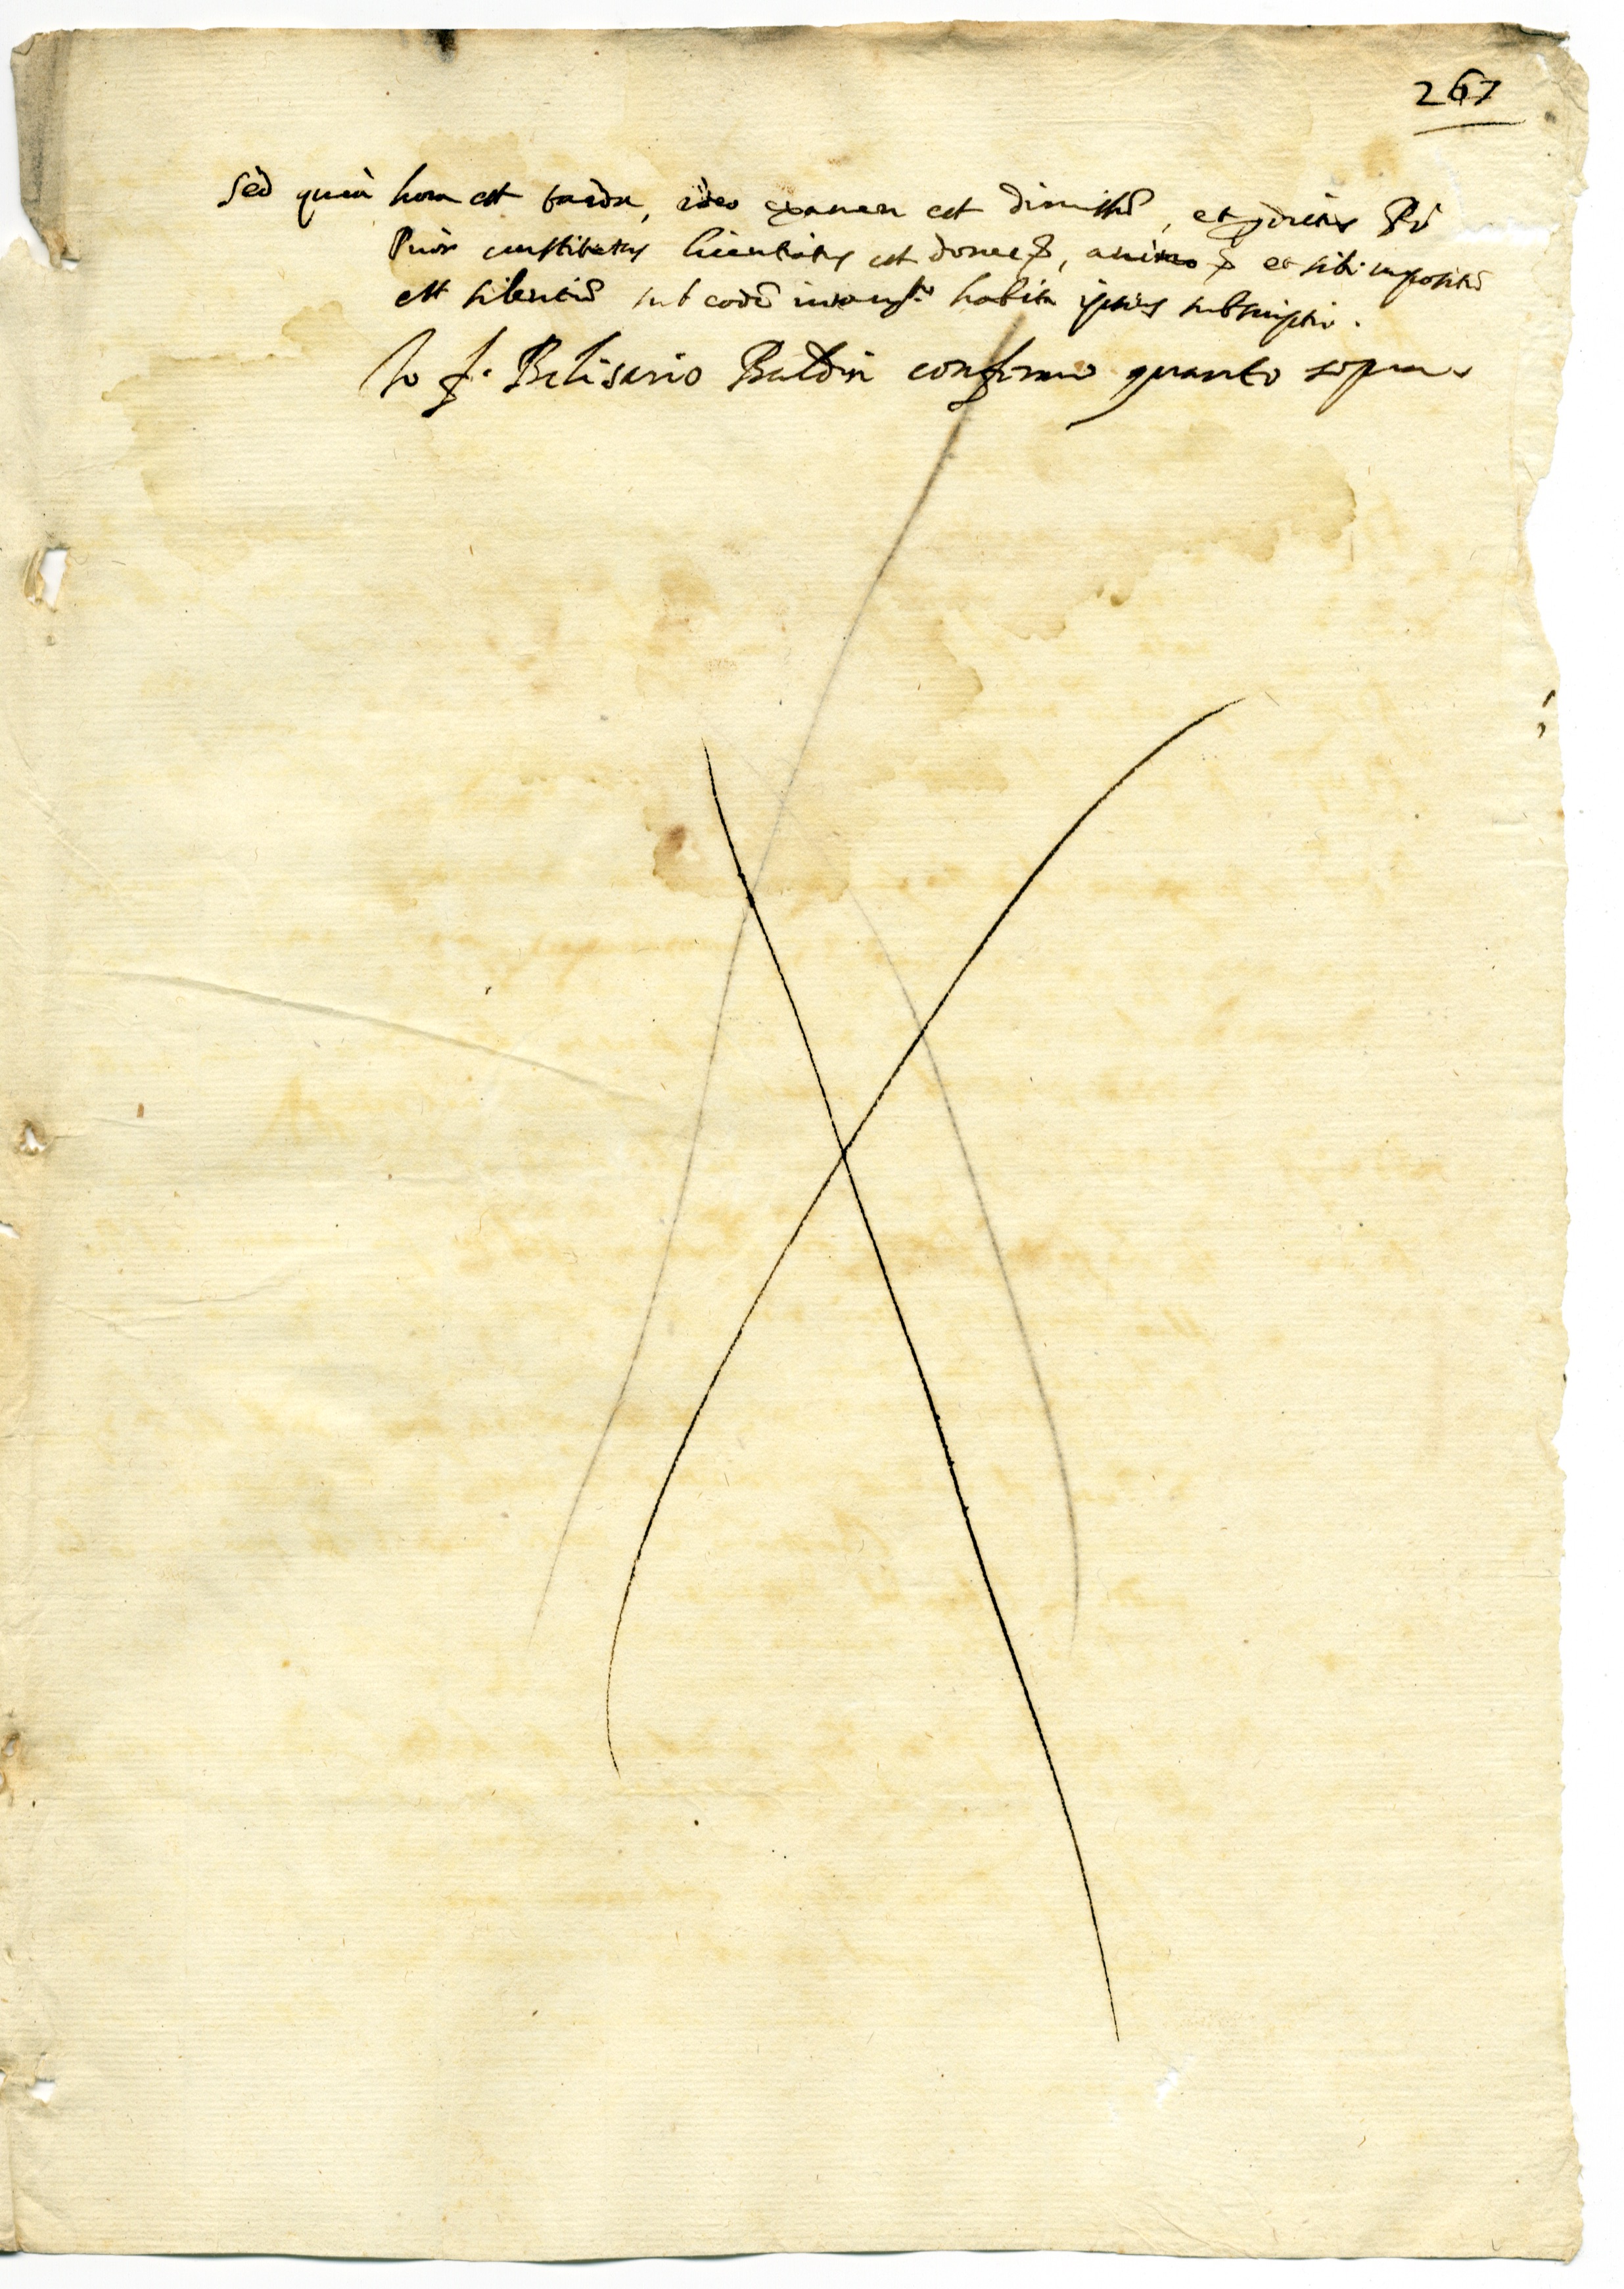 267
Sed quia hora est tarda, ideo examen est dimissũ, et p̃dictus
Prior constitutus licentiatus est donec &, animo & et sibi impositũ
est silentiũ sub eodẽ iuram.to habita ipsius subscriptio.
Io f. Belisario Baldin confermo quanto sopra